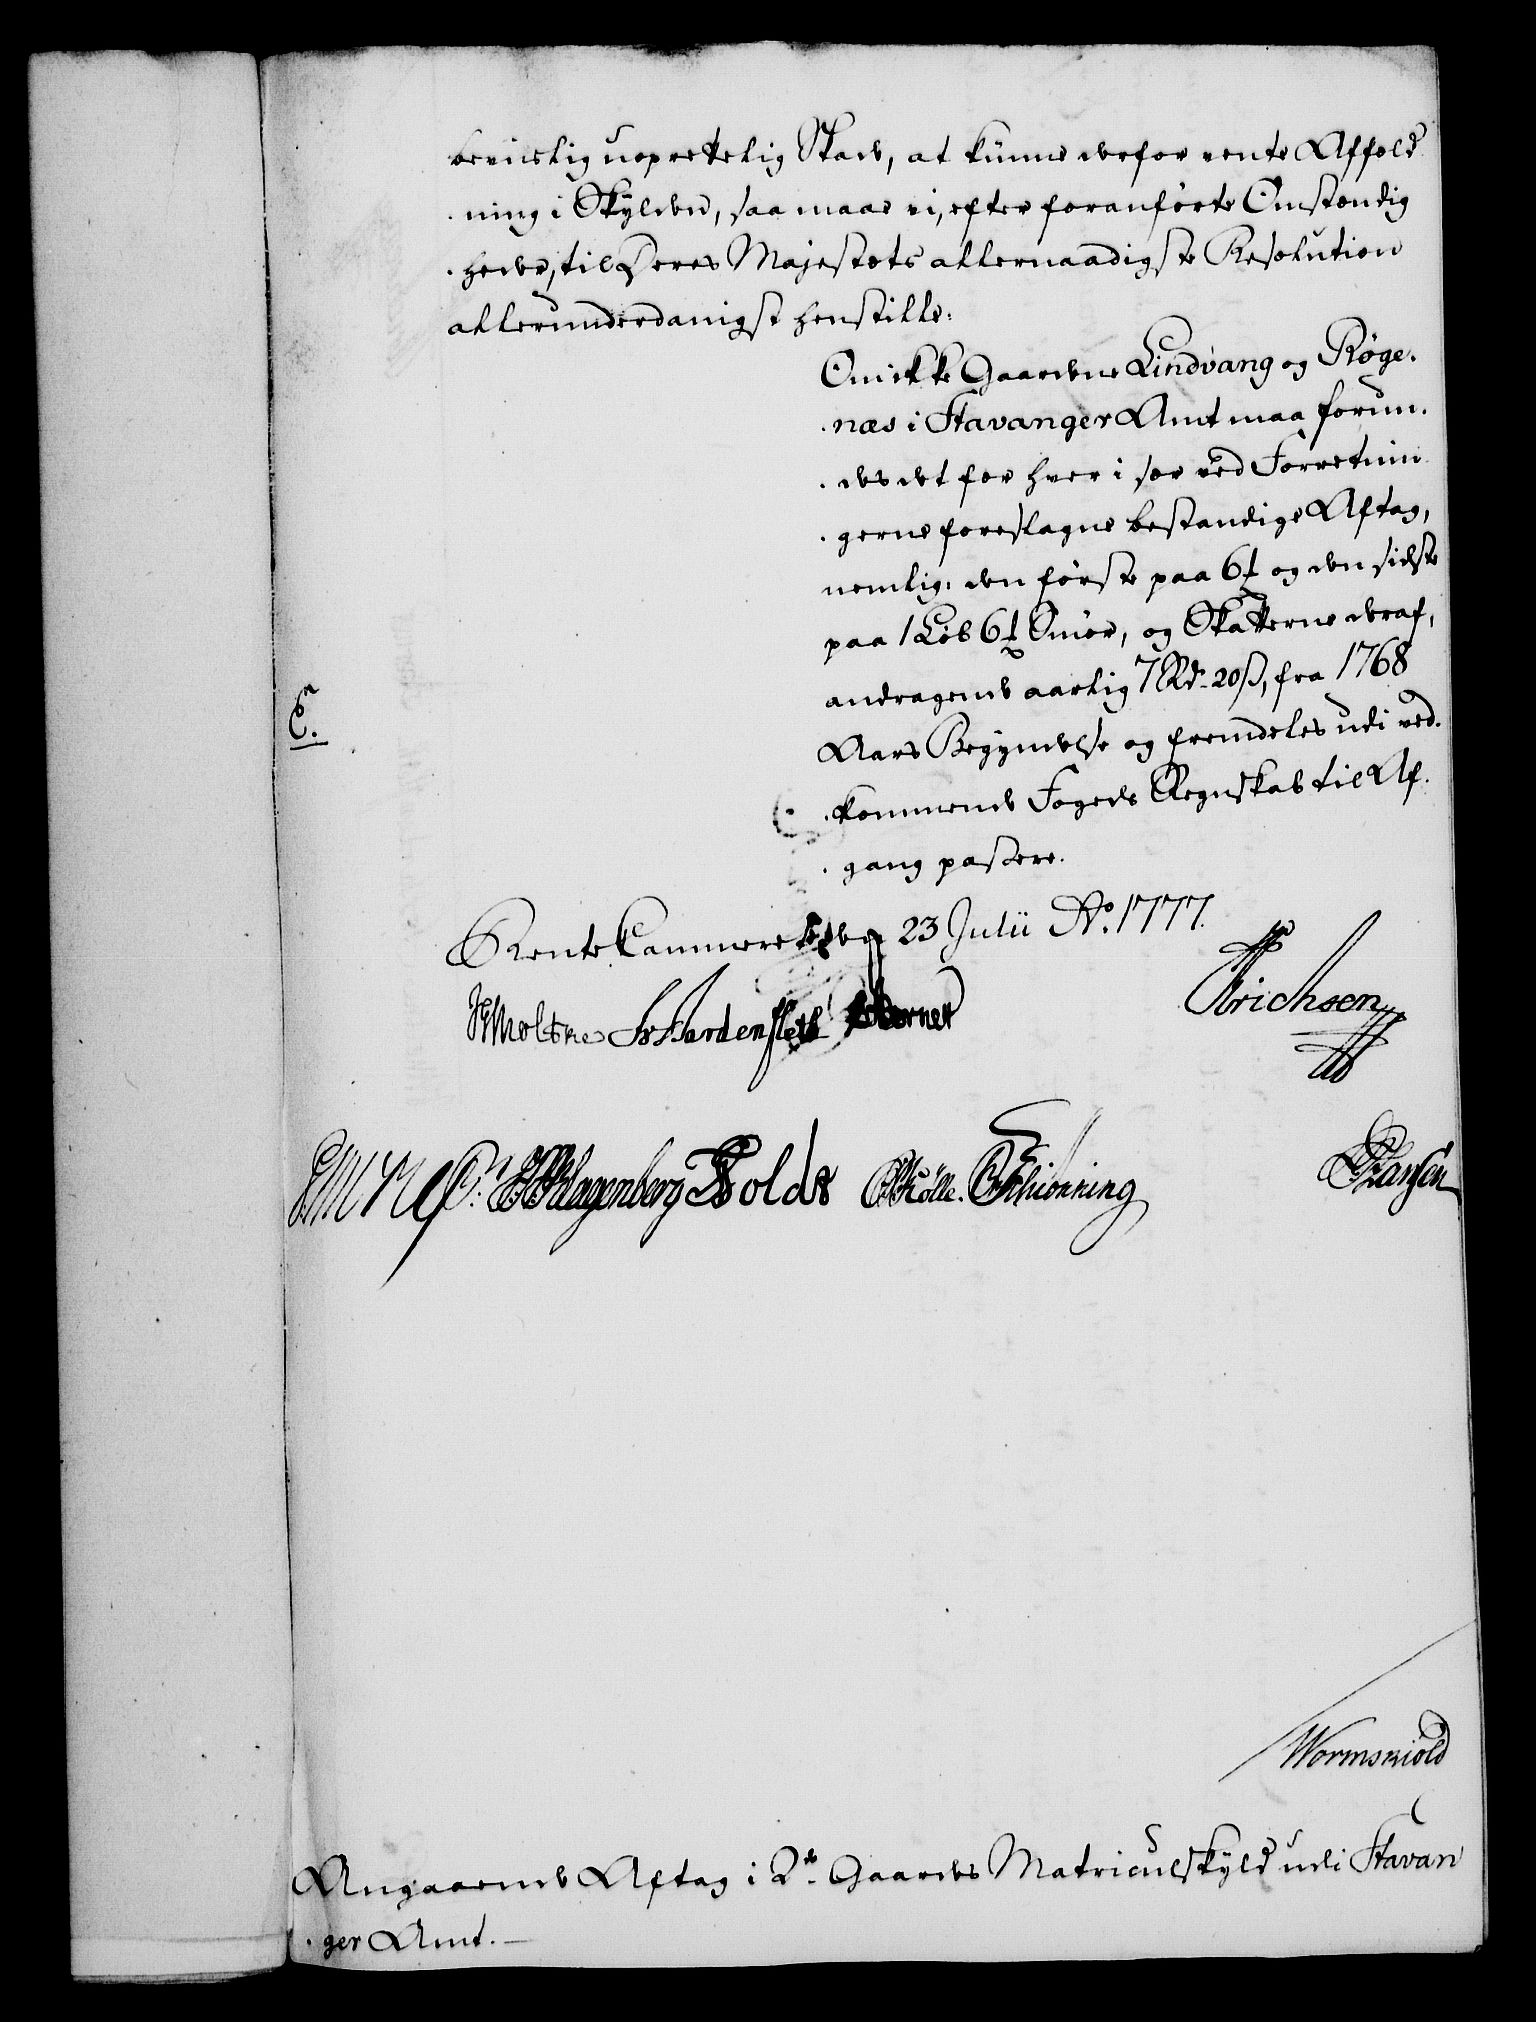 bevislig uoprettelig Skade, at kunne derfor vente Affæld
. ning i Skylden, saa maae vi, efter foranførte Omstændig
. heder, til Deres Majestæts allernaadigste Resolution
allerunderdanigst henstille:
Om ikke Gaardene Lindvang og Røge.
. næs i Stavanger Amt maa forun.
. des det for hver i sær ved Forretnin
. gerne foreslagne bestandige Aftag,
nemlig: den første paa 6 ℔ og den sidste
paa 1 Løb 6 ℔ Smør, og Skatterne deraf,
andragende aarlig 7 Rd. 20 β, fra 1768
Aars Begyndelse og fremdeles udi ved.
E.
. kommende Fogeds Regnskab til Af.
. gang passere.
RenteKammeret den 23 Julii Ao. 1777.
Moltke Hardenfleth Berner Erichsen
Klagenberg Holds Kølle. Schionning Hansen
Wormskiold
Angaaende Aftag i 2de Gaardes Matriculskyld udi Stavan
. ger Amt. —